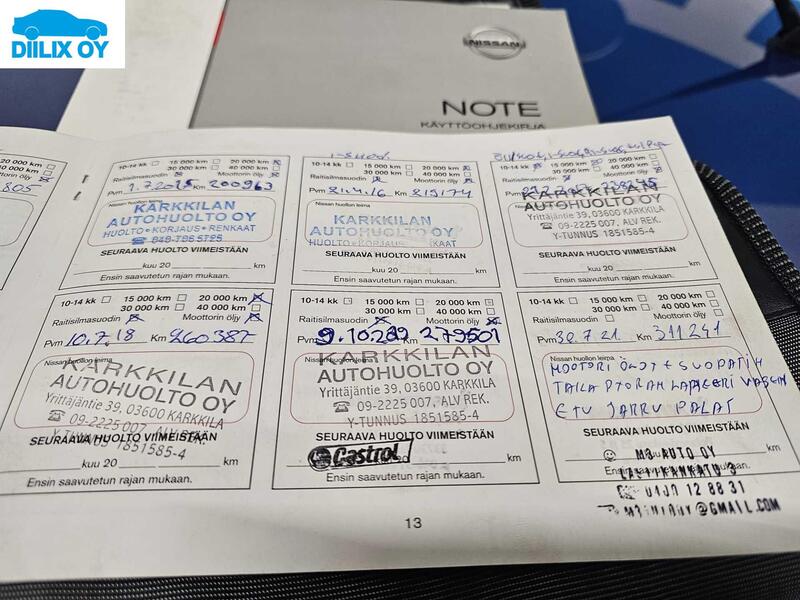 DIILIX OY
NISSAN
NOTE
KÄYTTÖOHJEKIRJA
20 000 km
40 000 km
Moottorin öljy
805
km
10-14 kk 15 000 km 20 000 km
30 000 km 40 000 km
Raitisilmasuodin Moottorin öljy
Pvm 1.7.2015 Km 200963
Nissan huollon leima
KARKKILAN
AUTOHUOLTO OY
HUOLTO • KORJAUS • RENKAAT
SEURAAVA HUOLTO VIIMEISTÄÄN
kuu 20 km
Ensin saavutetun rajan mukaan.
10-14 kk 15 000 km 20 000 km
30 000 km 40 000 km
Raitisilmasuodin Moottorin öljy
Pvm Km
Nissan huollon leima
KARKKILAN
AUTOHUOLTO OY
HUOLTO • KORJAUS • RENKAAT
SEURAAVA HUOLTO VIIMEISTÄÄN
kuu 20 km
Ensin saavutetun rajan mukaan.
10-14 kk 15 000 km 20 000 km
30 000 km 40 000 km
Raitisilmasuodin Moottorin öljy
Pvm Km
KARKKILAN
AUTOHUOLTO OY
Yrittäjäntie 39, 03600 KARKKILA
09-2225 007, ALV REK.
Y-TUNNUS 1851585-4
SEURAAVA HUOLTO VIIMEISTÄÄN
kuu 20 km
Ensin saavutetun rajan mukaan.
10-14 kk 15 000 km 20 000 km
30 000 km 40 000 km
Raitisilmasuodin Moottorin öljy
Pvm 10.7.18 Km 260387
Nissan huollon leima
KARKKILAN
AUTOHUOLTO OY
Yrittäjäntie 39, 03600 KARKKILA
09-2225 007, ALV REK.
Y-TUNNUS 1851585-4
SEURAAVA HUOLTO VIIMEISTÄÄN
kuu 20 km
Ensin saavutetun rajan mukaan.
10-14 kk 15 000 km 20 000 km
30 000 km 40 000 km
Raitisilmasuodin Moottorin öljy
Pvm Km 279501
Nissan huollon leima
KARKKILAN
AUTOHUOLTO OY
Yrittäjäntie 39, 03600 KARKKILA
09-2225 007, ALV REK.
Y-TUNNUS 1851585-4
SEURAAVA HUOLTO VIIMEISTÄÄN
Castrol
km
Ensin saavutetun rajan mukaan.
10-14 kk 15 000 km 20 000 km
30 000 km 40 000 km
Raitisilmasuodin Moottorin öljy
Pvm 30.7.21 Km 311241
Nissan huollon leima
MOOTORI
TAILA
ETU JARRU PALAT
SEURAAVA HUOLTO VIIMEISTÄÄN
M3 AUTO OY
km
Ensin saavutetun rajan mukaan.
@GMAIL.COM
13